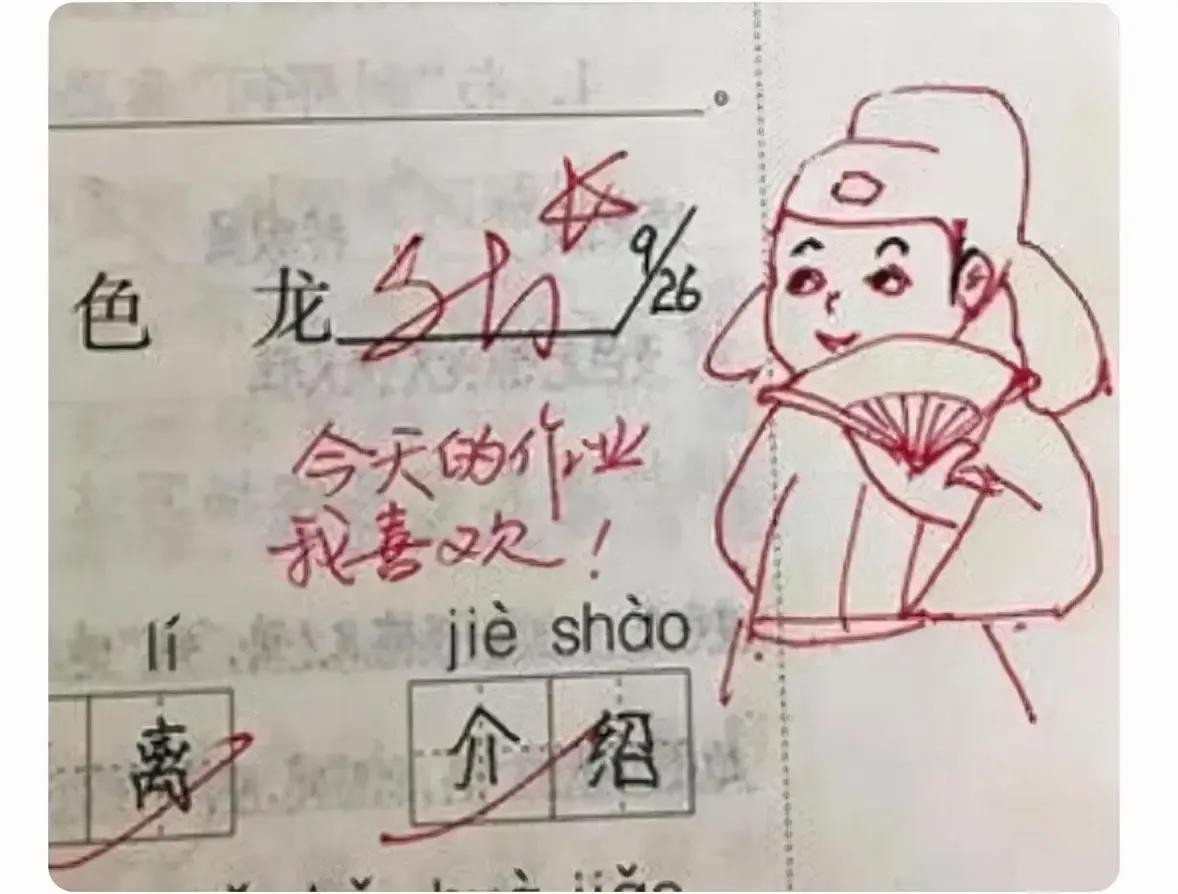 色 龙 9/26
今天的作业
我喜欢!
lí jiè shào
离 介 绍